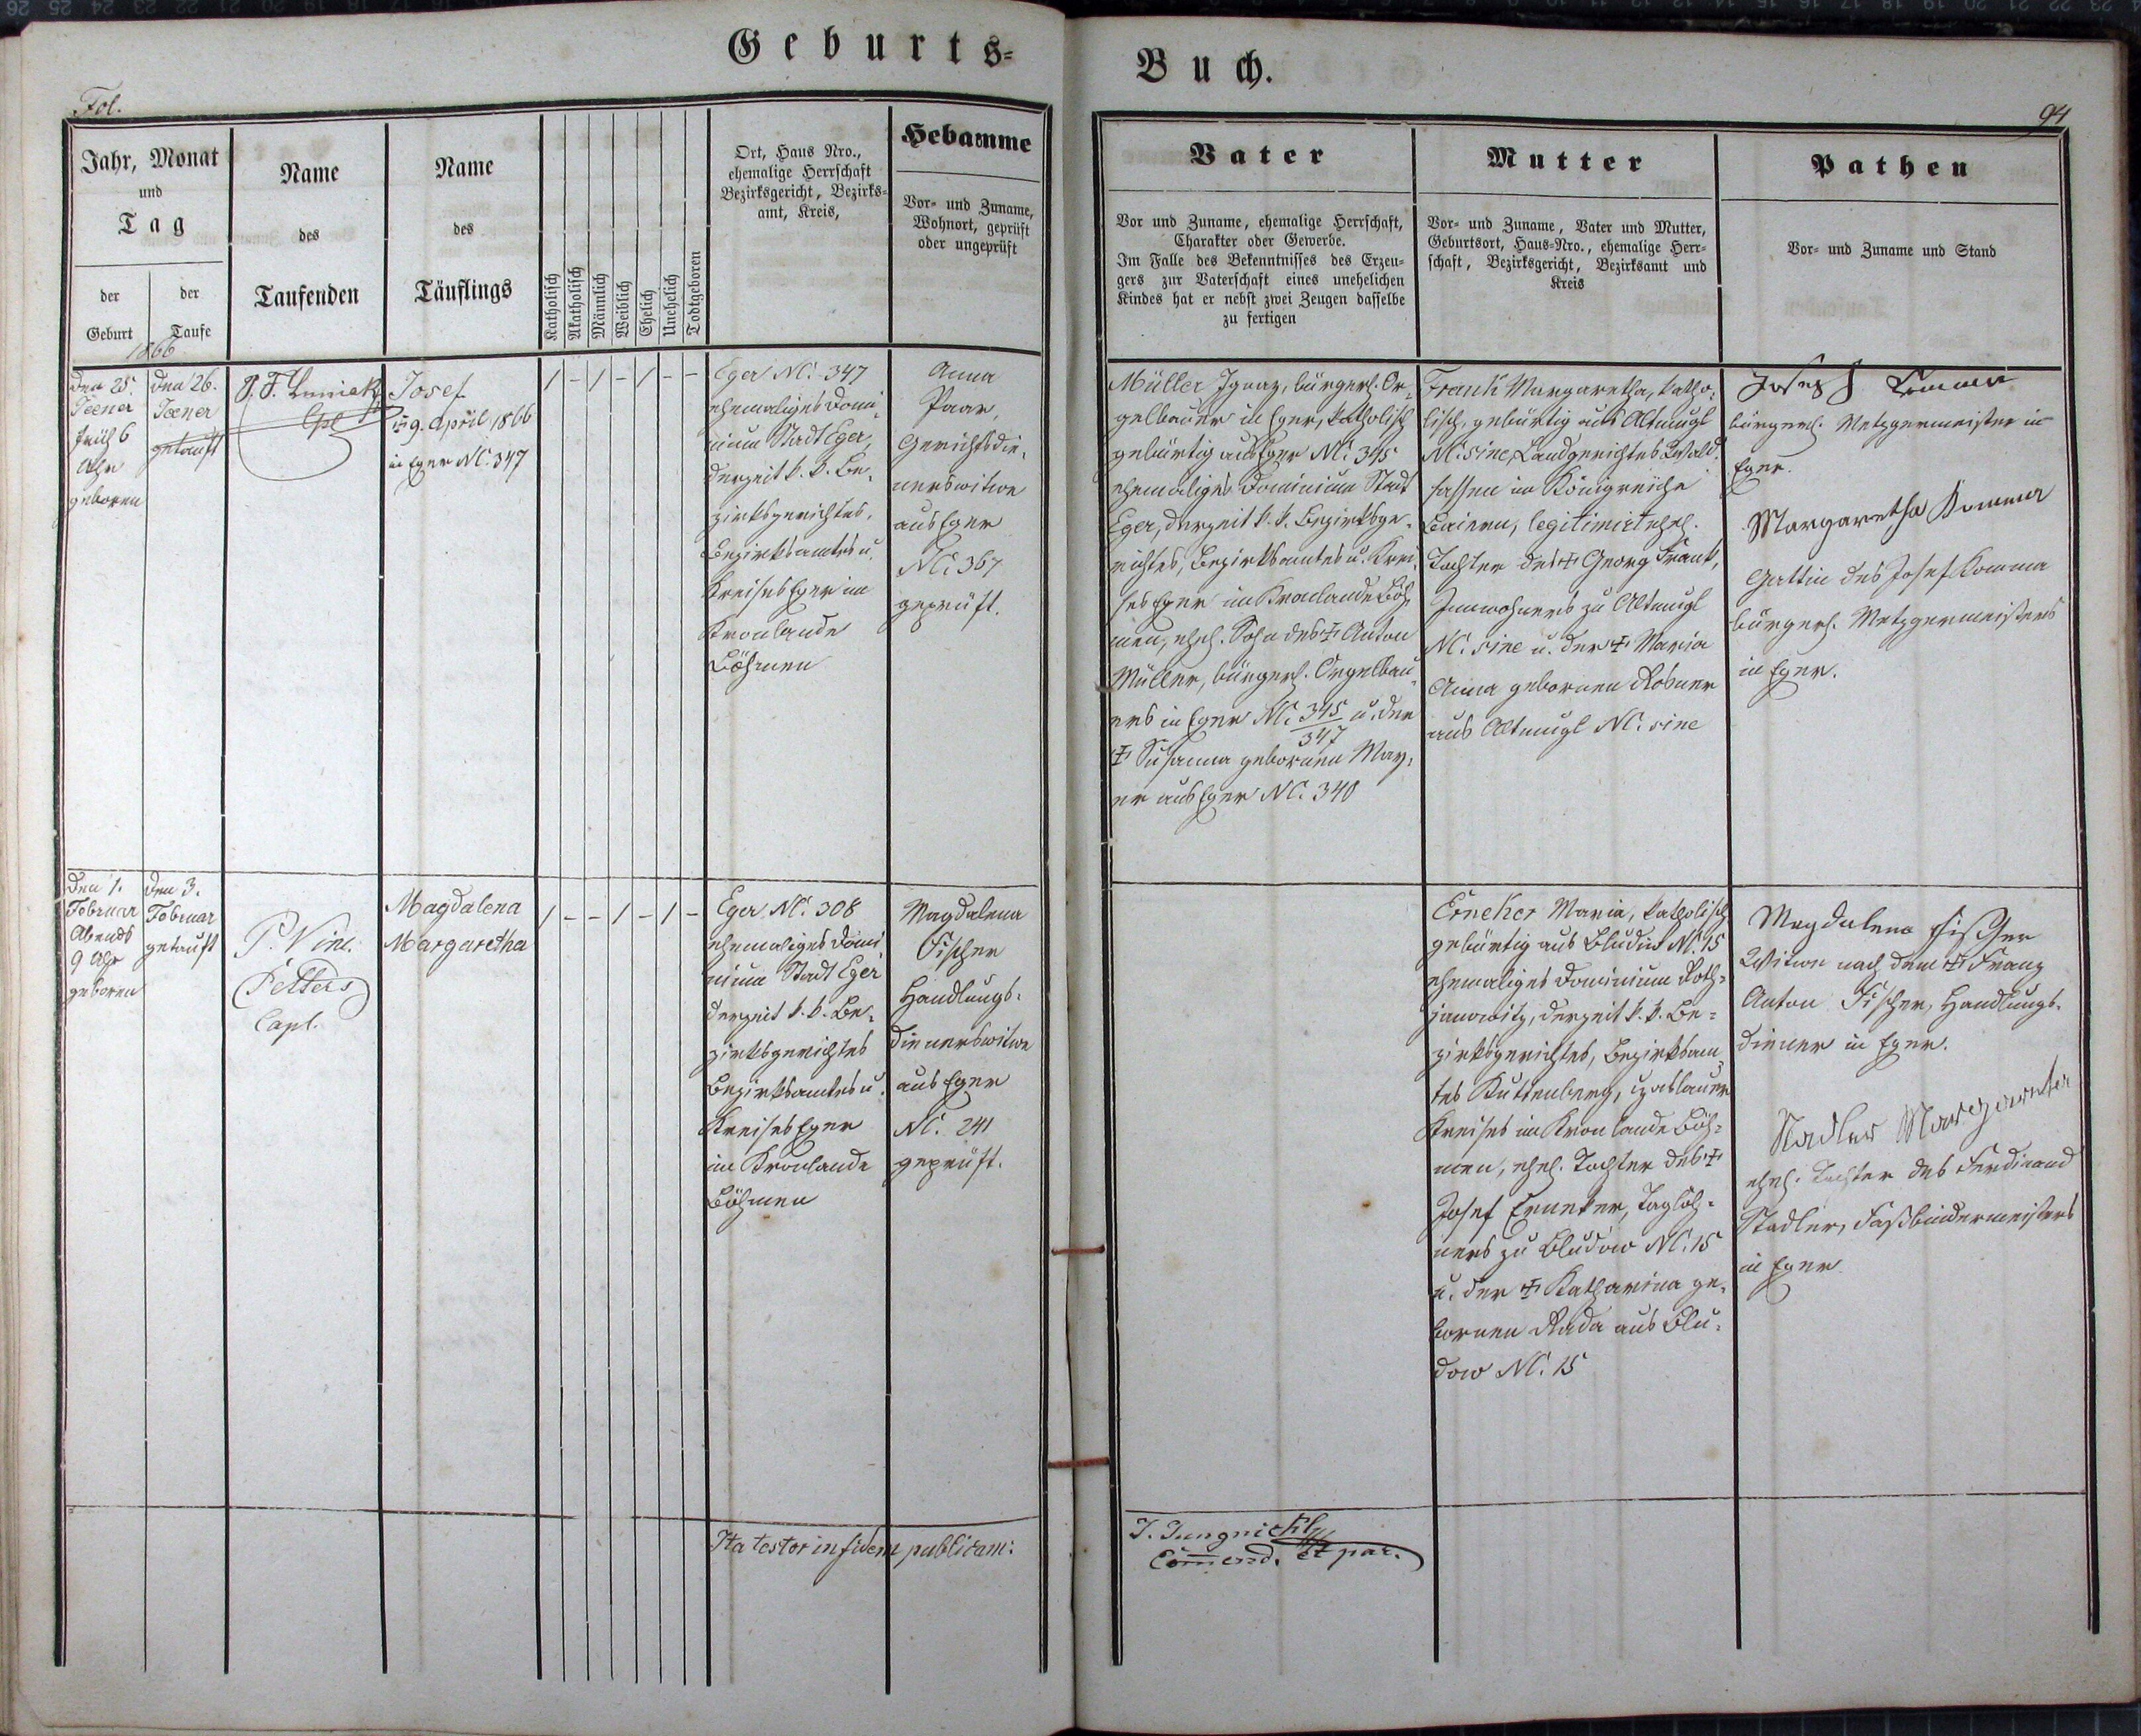 Geburts=
Buch.
Fol.
94
Jahr, Monat
und
Tag
der
Geburt
der
Taufe
1866
Name
des
Taufenden
Name
des
Täuflings
Katholisch
Akatholisch
Männlich
Weiblich
Ehelich
Unehelich
Todtgeboren
Ort, Haus Nro.,
ehemalige Herrschaft
Bezirksgericht, Bezirks=
amt, Kreis,
Hebamme
Vor= und Zuname,
Wohnort, geprüft
oder ungeprüft
Vater
Vor und Zuname, ehemalige Herrschaft,
Charakter oder Gewerbe.
Im Falle des Bekenntnisses des Erzeu=
gers zur Vaterschaft eines unehelichen
Kindes hat er nebst zwei Zeugen dasselbe
zu fertigen
Mutter
Vor= und Zuname, Vater und Mutter,
Geburtsort, Haus=Nro., ehemalige Herr=
schaft, Bezirksgericht, Bezirksamt und
Kreis
Pathen
Vor= und Zuname und Stand
den 25.
Jæner
früh 6
Uhr
geboren
den 26.
Jæner
getauft
P. F.
Cpl
Josef
9. April 1866
in Eger NC. 347
/ - / - / - -
Eger NC. 347
ehemaliges Domi=
nium Stadt Eger,
derzeit k. k. Be=
zirksgerichtes,
Bezirksamtes u.
Kreises Eger im
Kronlande
Böhmen
Anna
Paar,
Gerichtsdie=
nerswitwe
aus Eger
NC. 367
geprüft.
Müller Ignaz, bürgerl. Or=
gelbauer in Eger, katholisch
gebürtig aus Eger NC. 345
ehemaliges Dominium Stadt
Eger, derzeit k. k. Bezirksge=
richtes, Bezirksamtes u. Krei=
ses Eger im Kronlande Böh=
men, ehel. Sohn des ‡ Anton
Müller, bürgerl. Orgelbau=
ers in Eger NC. 345/347 u. der
‡ Susanna gebornen May=
er aus Eger NC. 340
Frank Margaretha, katho=
lisch, gebürtig aus Altmugl
NC. sine, Landgerichtes Wald=
sassen im Königreiche
Baiern, legitimirt ehel.
Tochter des ‡ Georg Frank,
Inwohners zu Altmugl
NC. sine u. der ‡ Maria
Anna gebornen Rosner
aus Altmugl NC. sine
Josef Komma
bürgerl. Metzgermeister in
Eger.
Margaretha Komma
Gattin des Josef Komma
bürgerl. Metzgermeisters
in Eger.
Den 1.
Februar
Abends
9 Uhr
geboren
Den 3.
Februar
getauft
P. Vinc.
Petters
Capl.
Magdalena
Margaretha
/ - - / - / -
Eger NC. 308
ehemaliges Domi
nium Stadt Eger
derzeit k. k. Be=
zirksgerichtes
Bezirksamtes u.
Kreises Eger
im Kronlande
Böhmen
Magdalena
Fischer
Handlungs=
dienerswitwe
aus Eger
NC. 241
geprüft.
Erneker Maria, katholisch
gebürtig aus Bludow NC. 15
ehemaliges Dominium Roth=
janowitz, derzeit k. k. Be=
zirksgerichtes, Bezirksam
tes Kuttenberg, czaslauer
Kreises im Kronlande Böh=
men, ehel. Tochter des ‡
Josef Erneker, Taglöh=
ners zu Bludow NC. 15
u. der ‡ Katharina ge=
bornen Rada aus Blu=
dow NC. 15
Magdalena Fischer
Witwe nach dem ‡ Franz
Anton Fischer, Handlungs=
diener in Eger.
Stadler Margaretha
ehel. Tochter des Ferdinand
Stadler, Faßbindermeisters
in Eger
Ita testor in fidem publicam:
J. Jungnickl
Com̅end. et par.